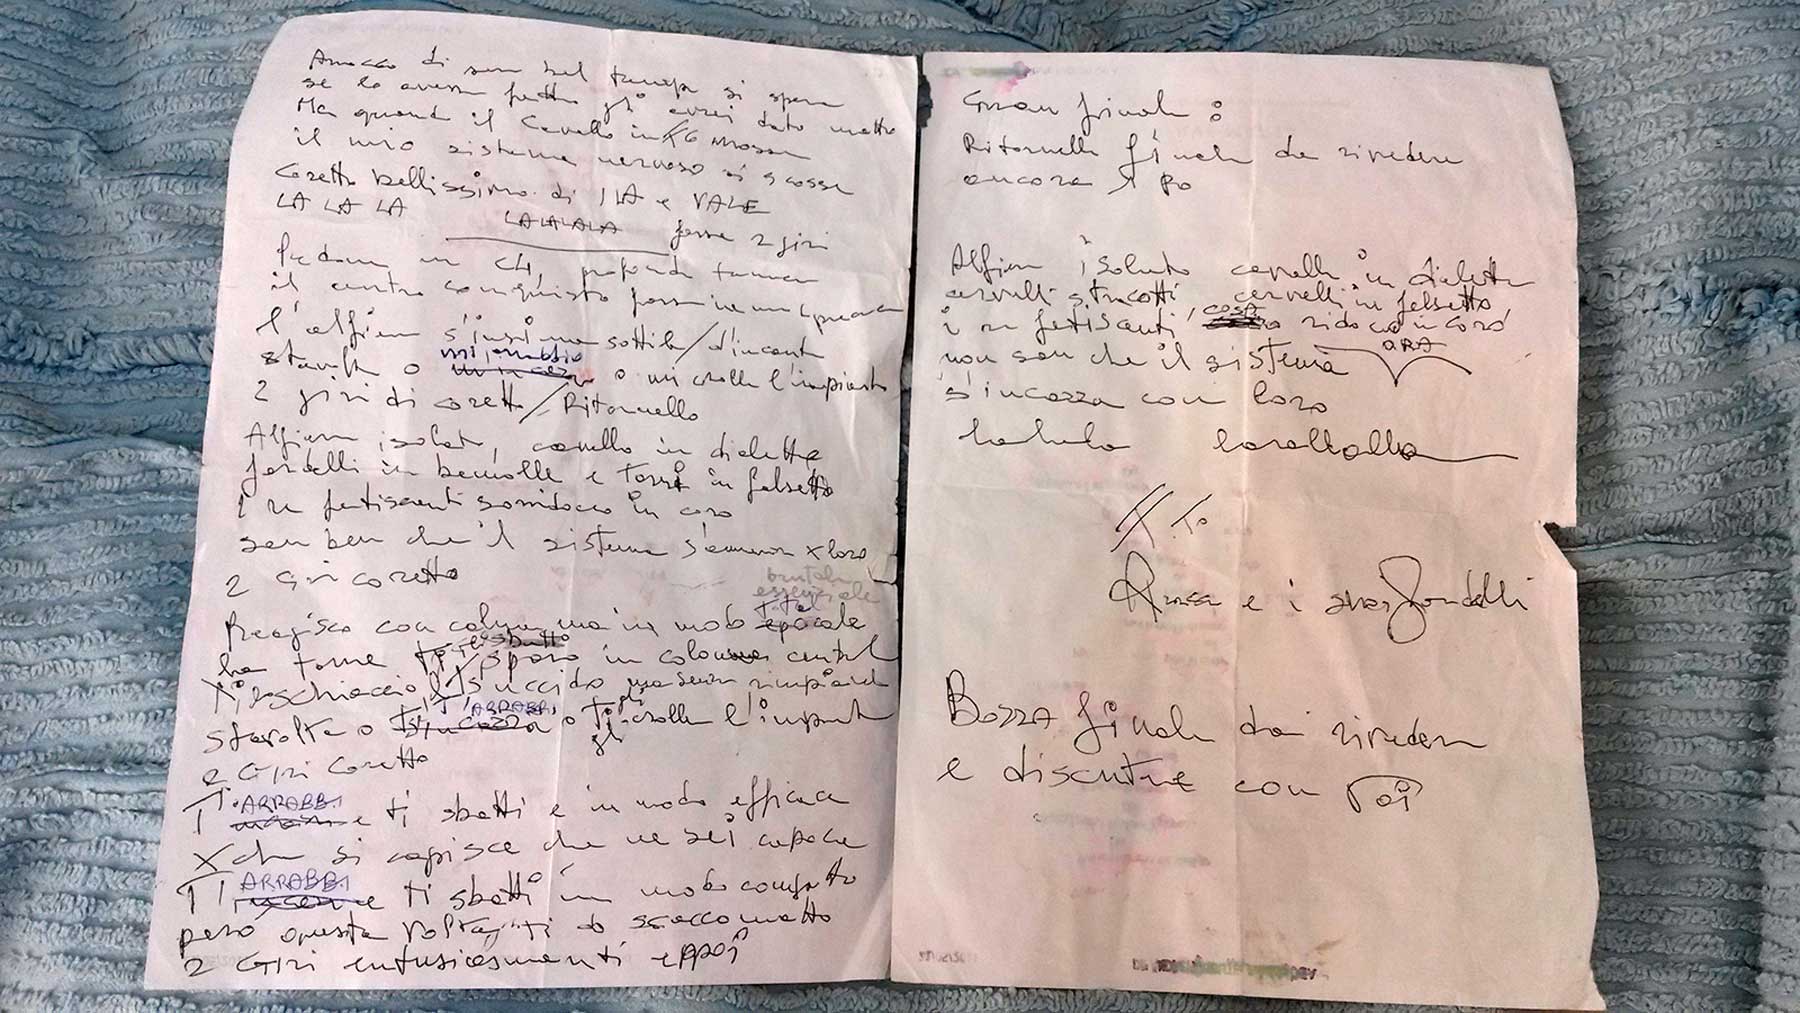 Arrocco di sera bel tempo si spera
se lo avessi fatto gli avrei dato matto
Ma quando il Cavallo in f6 mossa
il mio sistema nervoso si scosse
Coretto bellissimo di ILA e VALE
LA LA LA LALALALA forse 2 giri
Pedone in C4, profonda
il centro conquisto
l'alfiere s'insinua sottile / d'incanto
stavolta o mi arrabbio o mi crolla l'impianto
2 giri di coretto / Ritornello
Alfiere isolato, cavallo in dialetto
fardelli in bemolle e Torri in falsetto
i re fetiscenti sorridono in coro
san ben che il sistema s'ammoscia x loro
2 Giri coretto
brutale
essenziale
total
Reagisco con calma ma in modo epocale
la torre sposo in colonna central
Ti schiaccio l' succido ma senza rimpianti
T'ARRABBI
stavolta o o ti crolla l'impianto
gli
2 Giri Coretto
T' ARRABBI e ti sbatti e in modo efficace
X che si capisce che ne sei capace
T' ARRABBI e ti sbatti in modo compatto
però questa volta ti dò scaccomatto
2 Giri entusiasmanti eppoi
Gran finale:
Ritornello finale da rivedere
ancora 1 po
Alfiere isolato cavallo in dialetto
cervelli stracotti cervelli in falsetto
i re fetiscenti, cosa ridono in coro
ORA
non san che il sistema
s'incazza con loro
lalala laralallalla
F.To
e i suoi fardelli
Bozza finale da rivedere
e discutere con Voi